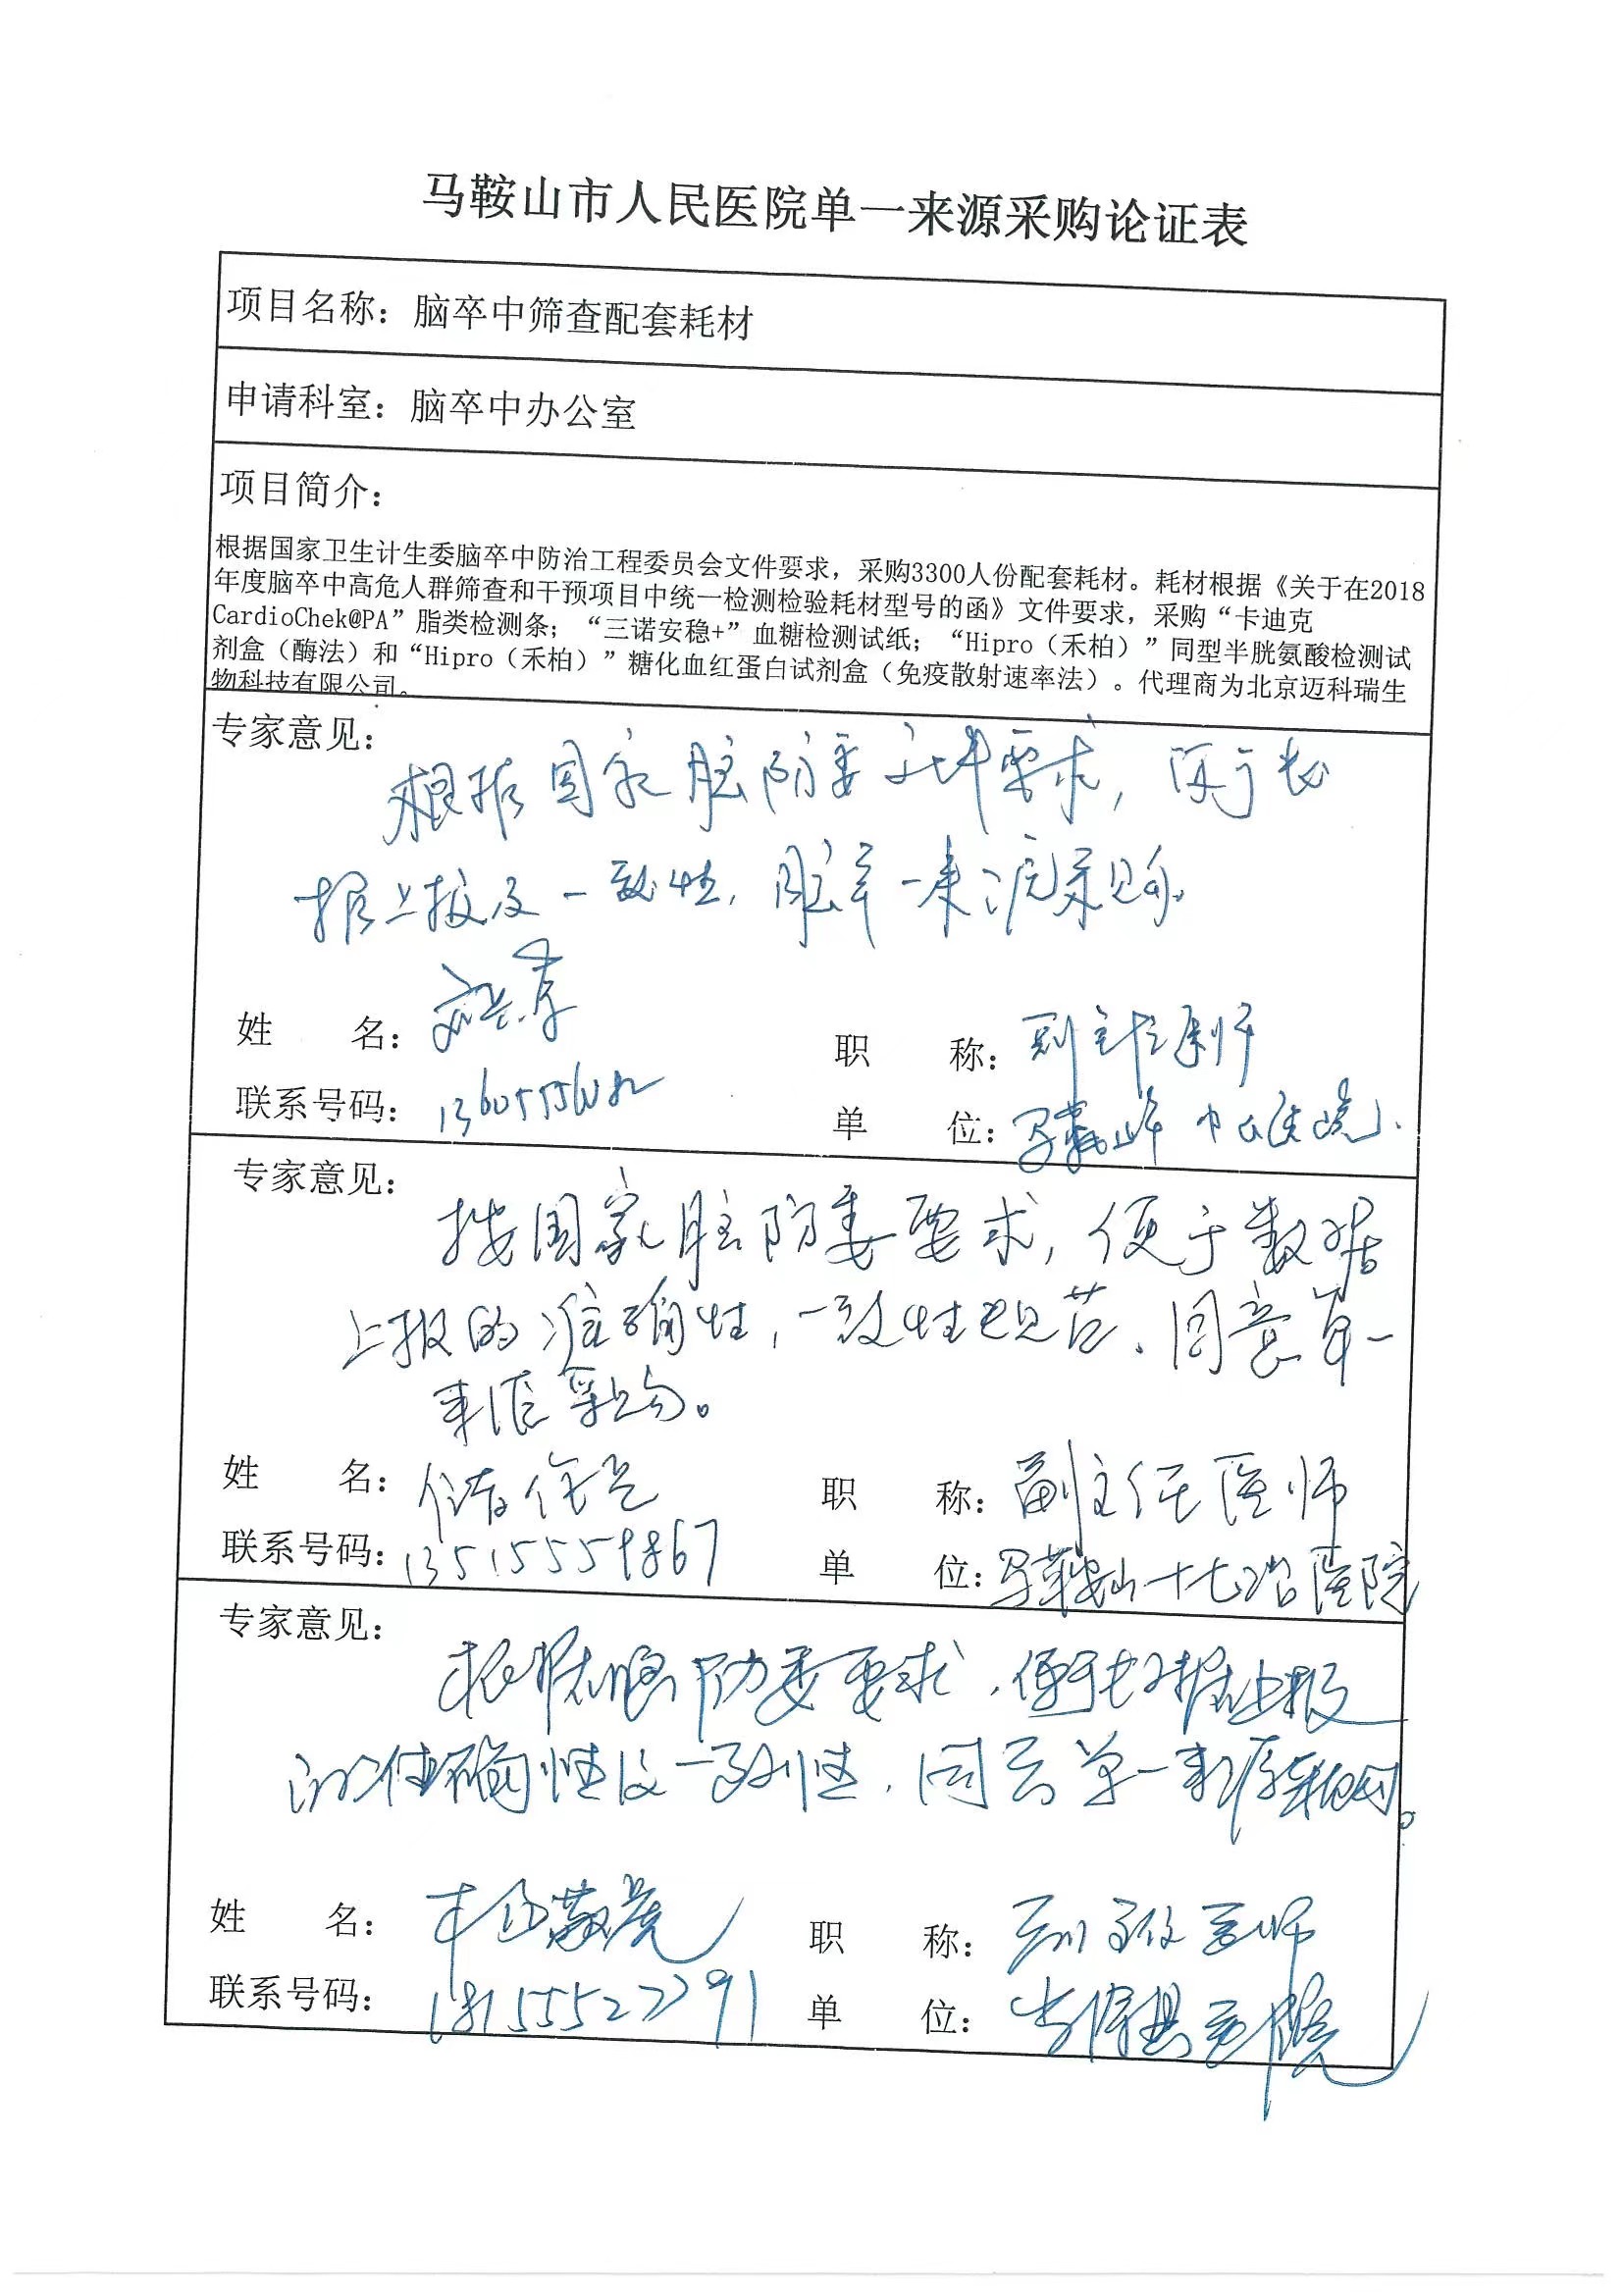 马鞍山市人民医院单一来源采购论证表
项目名称：脑卒中筛查配套耗材
申请科室：脑卒中办公室
项目简介：
根据国家卫生计生委脑卒中防治工程委员会文件要求，采购3300人份配套耗材。耗材根据《关于在2018
年度脑卒中高危人群筛查和干预项目中统一检测检验耗材型号的函》文件要求，采购“卡迪克
CardioChek@PA”脂类检测条；“三诺安稳+”血糖检测试纸；“Hipro（禾柏）”同型半胱氨酸检测试
剂盒（酶法）和“Hipro（禾柏）”糖化血红蛋白试剂盒（免疫散射速率法）。代理商为北京迈科瑞生
物科技有限公司。
专家意见：
根据国家脑防委文件要求，
上报及一致性，单一来源采购。
姓 名：
职 称：副主任
联系号码：
单 位：马鞍山市
专家意见：
按国家脑防委要求，便于数据
上报的准确性，一致性规范。同意单一
来源采购。
姓 名：
职 称：副主任医师
联系号码：13515559867
单 位：马鞍山十七冶医院
专家意见：
根据脑防委要求，便于数据上报
的准确性及一致性，同意单一来源采购。
姓 名：
职 称：副主任医师
联系号码：18155527791
单 位：当涂县医院